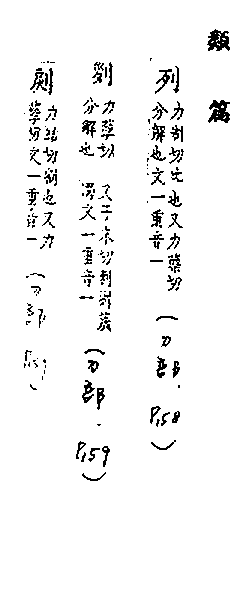 類篇
列 力制切比也又力櫱切
分解也文一重音一
(刀部.P.158)
力櫱切
分解也 文一重音一
(刀部.P.159)
力 切 也又力
櫱切文一重音一
(刀部 P.159)